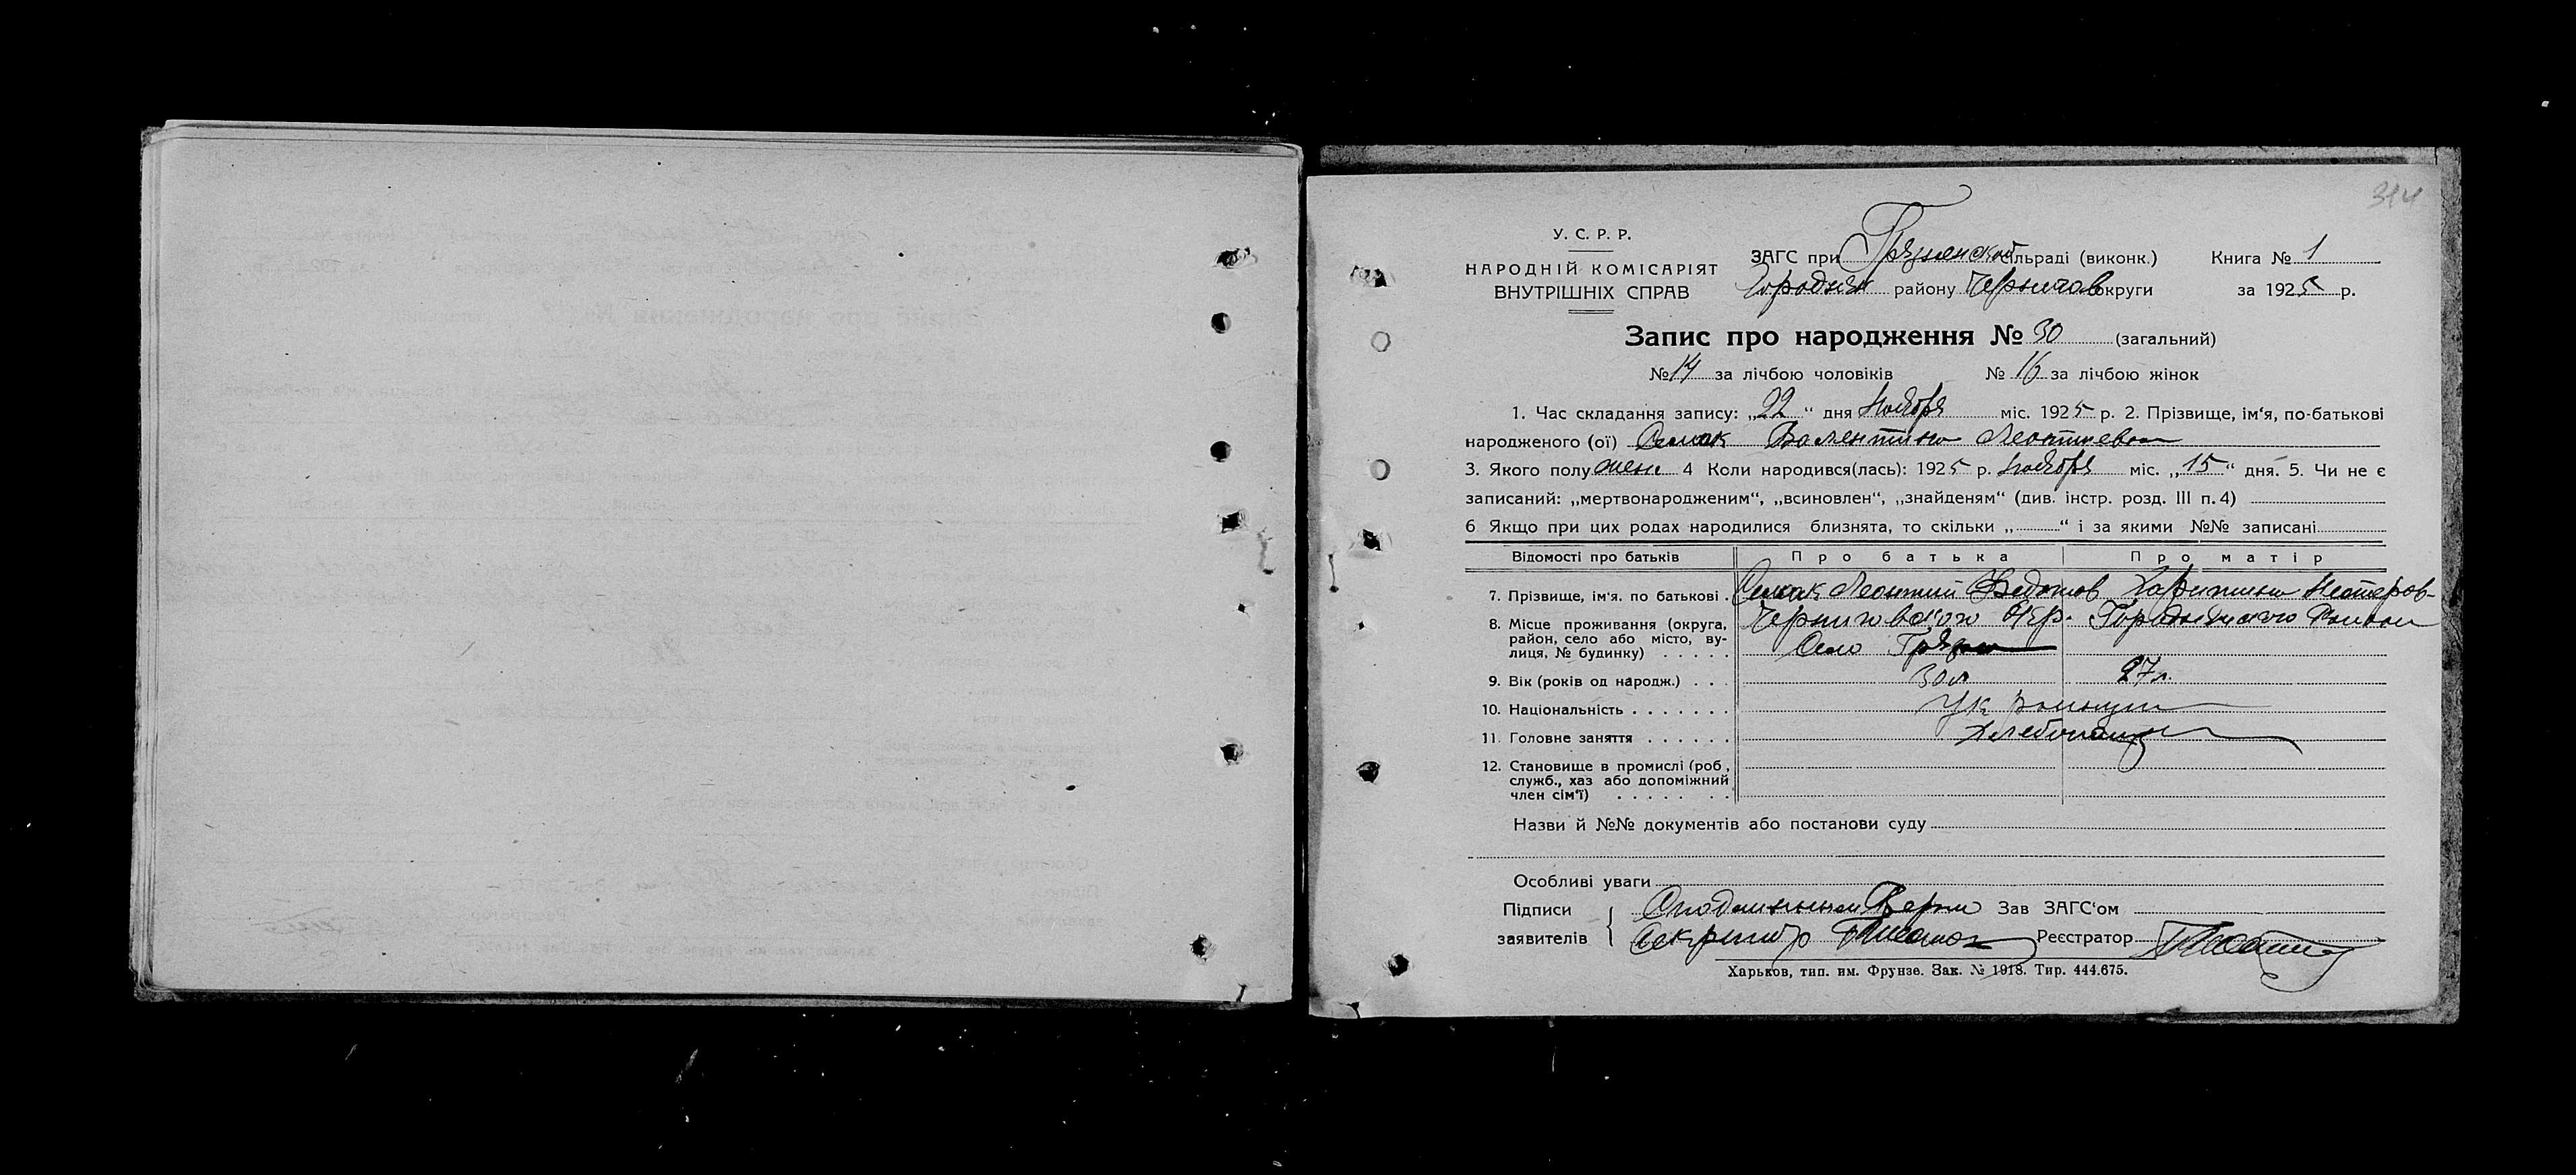 314
У. С. Р. Р.
НАРОДНІЙ КОМІСАРІЯТ
ВНУТРІШНІХ СПРАВ
ЗАГС при Грязненской сільраді (виконк.) Книга № 1
Городнян району Чернигов округи за 1925 р.
Запис про народження № 30 (загальний)
№ 14 за лічбою чоловіків № 16 за лічбою жінок
1. Час складання запису: „22“ дня Ноября міс. 1925 р. 2. Прізвище, ім‘я, по-батькові
народженого (ої) Семак Валентина Леонтиевна
3. Якого полу жен. 4 Коли народився(лась): 1925 р. Ноября міс. „15“ дня. 5. Чи не є
записаний: „мертвонародженим“, „всиновлен“, „знайденям“ (див. інстр. розд. III п. 4)
6 Якщо при цих родах народилися близнята, то скільки „ “ і за якими №№ записані
Відомості про батьків Про батька Про матір
7. Прізвище, ім‘я. по батькові . Семак Леонтий Федотов Харитина Нестеров-
8. Місце проживання (округа, район, село або місто, вулиця, № будинку) Черниговского Окр. Городнянского Района
Село Грязна
9. Вік (років од народж.) . . . 30 л 27 л.
10. Національність . . . . . . . Украинцы
11. Головне заняття . . . . . . Хлебопашцы
12. Становище в промислі (роб., служб., хаз або допоміжний член сім‘ї) . . . . . . .
Назви й №№ документів або постанови суду
Особливі уваги
Підписи Зав ЗАГС‘ом
заявителів Секретарь Реєстратор
Харьков, тип. им. Фрунзе. Зак. № 1918. Тир. 444.675.